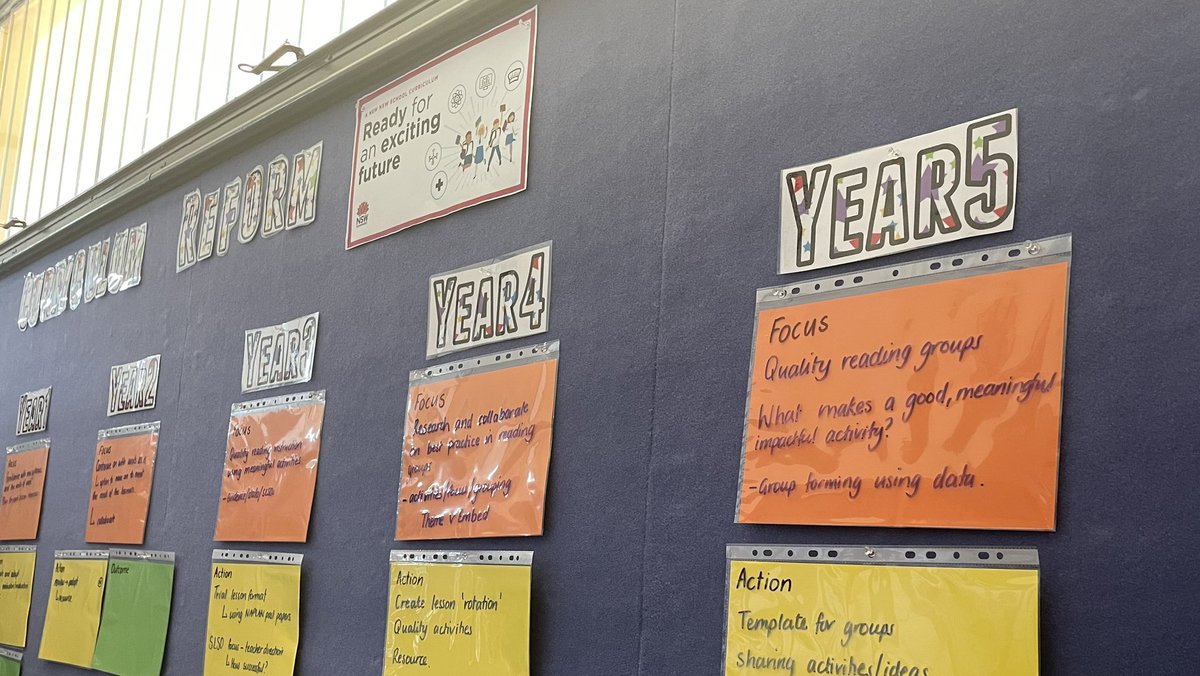 CURRICULUM
REFORM
A NEW NSW SCHOOL CURRICULUM
Ready for
an exciting
future
NSW
YEAR1
YEAR2
Focus
Continue on with
the needs of the learners.
↳ collaborate
Action
↳ Resource
Outcome
YEAR3
Focus
Quality reading instruction
using meaningful activities
- Evidence/data/SLSO.
Action
Trial lesson format
↳ using NAPLAN past papers
SLSO Focus - teacher direction
↳ How successful?
YEAR4
Focus
Research and collaborate
on best practice in reading
groups
- activities/focus/grouping
Theme v Embed
Action
Create lesson 'rotation'
Quality activities
Resource
YEAR5
Focus
Quality reading groups
What makes a good, meaningful
impactful activity?
- Group forming using data.
Action
Template for groups
sharing activities/ideas